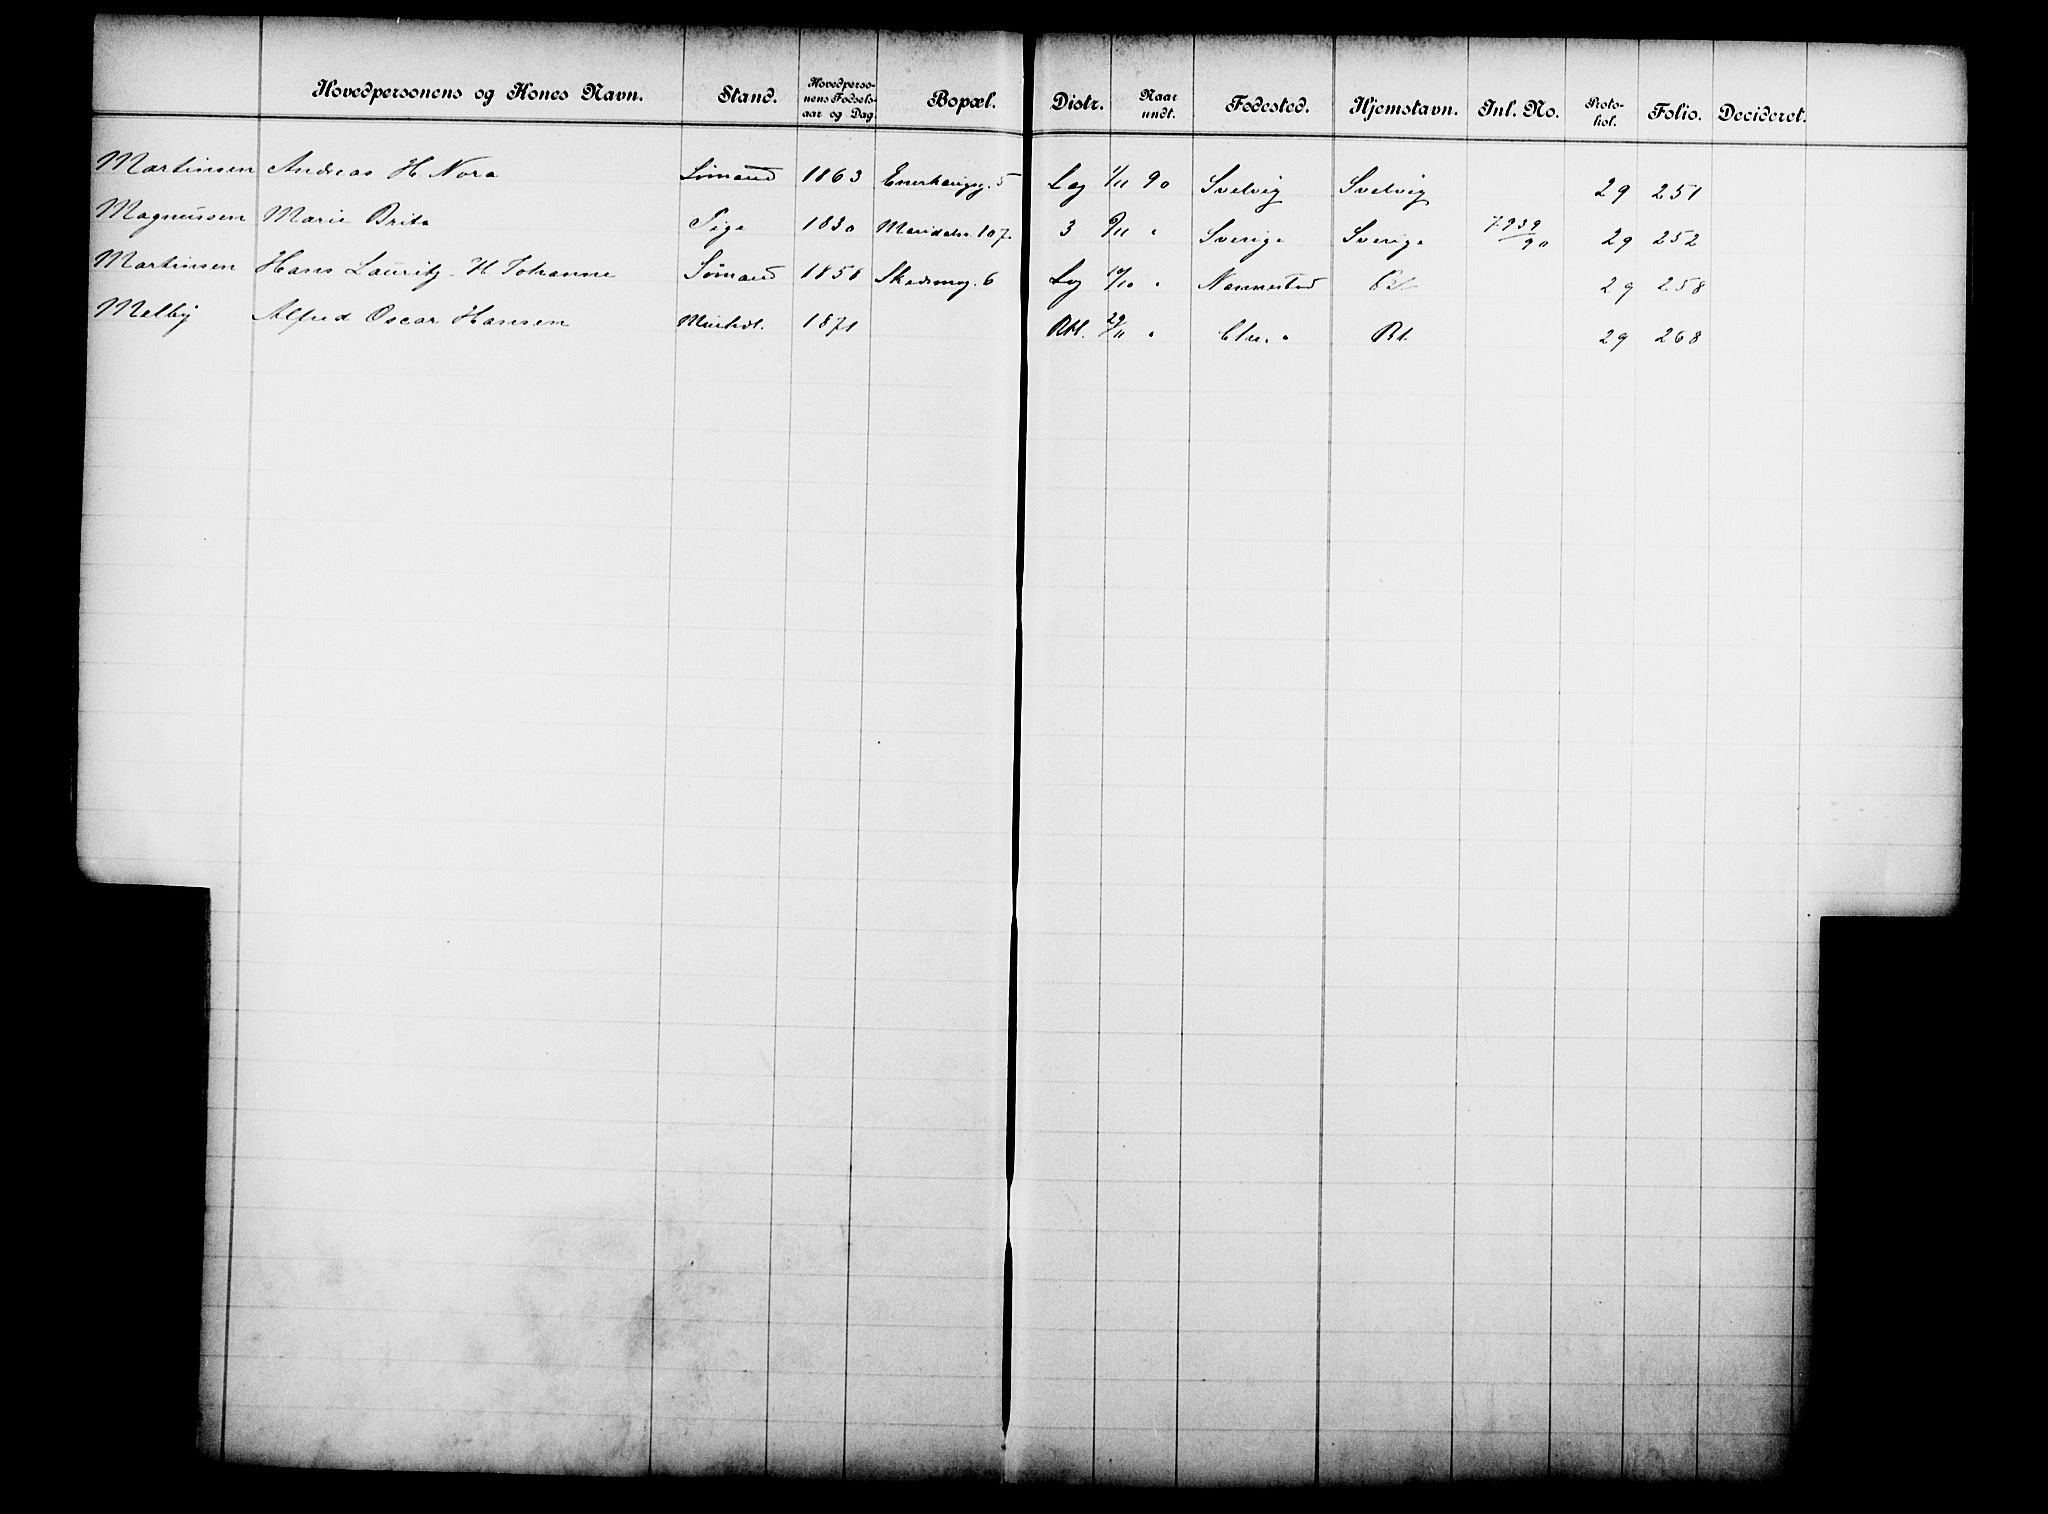 Hovedpersonens og Kones Navn. Stand. Hovedperso-nens Fødsels-aar og Dag. Bopæl. Distr. Naar undt. Fødested. Hjemstavn. Jnl. No. Proto-kol. Folio. Decideret.
Martinsen Andreas H. Nora Sømand 1863 Enerhaugg. 5 Lag 1/11 90 Svelvig Svelvig 29 251
Magnussen Marie Brita Pige 1830 Maridalsv. 107. 3 9/11 " Sverige Sverige 7939/90 29 252
Martinsen Hans Lauritz H Johanne Sømand 1858 Skedsmog. 6 Lag 10/10 " 29 258
Melby Alfred Oscar Hansen 1871 Rkl. 29/11 " Chr. a Rt. 29 268